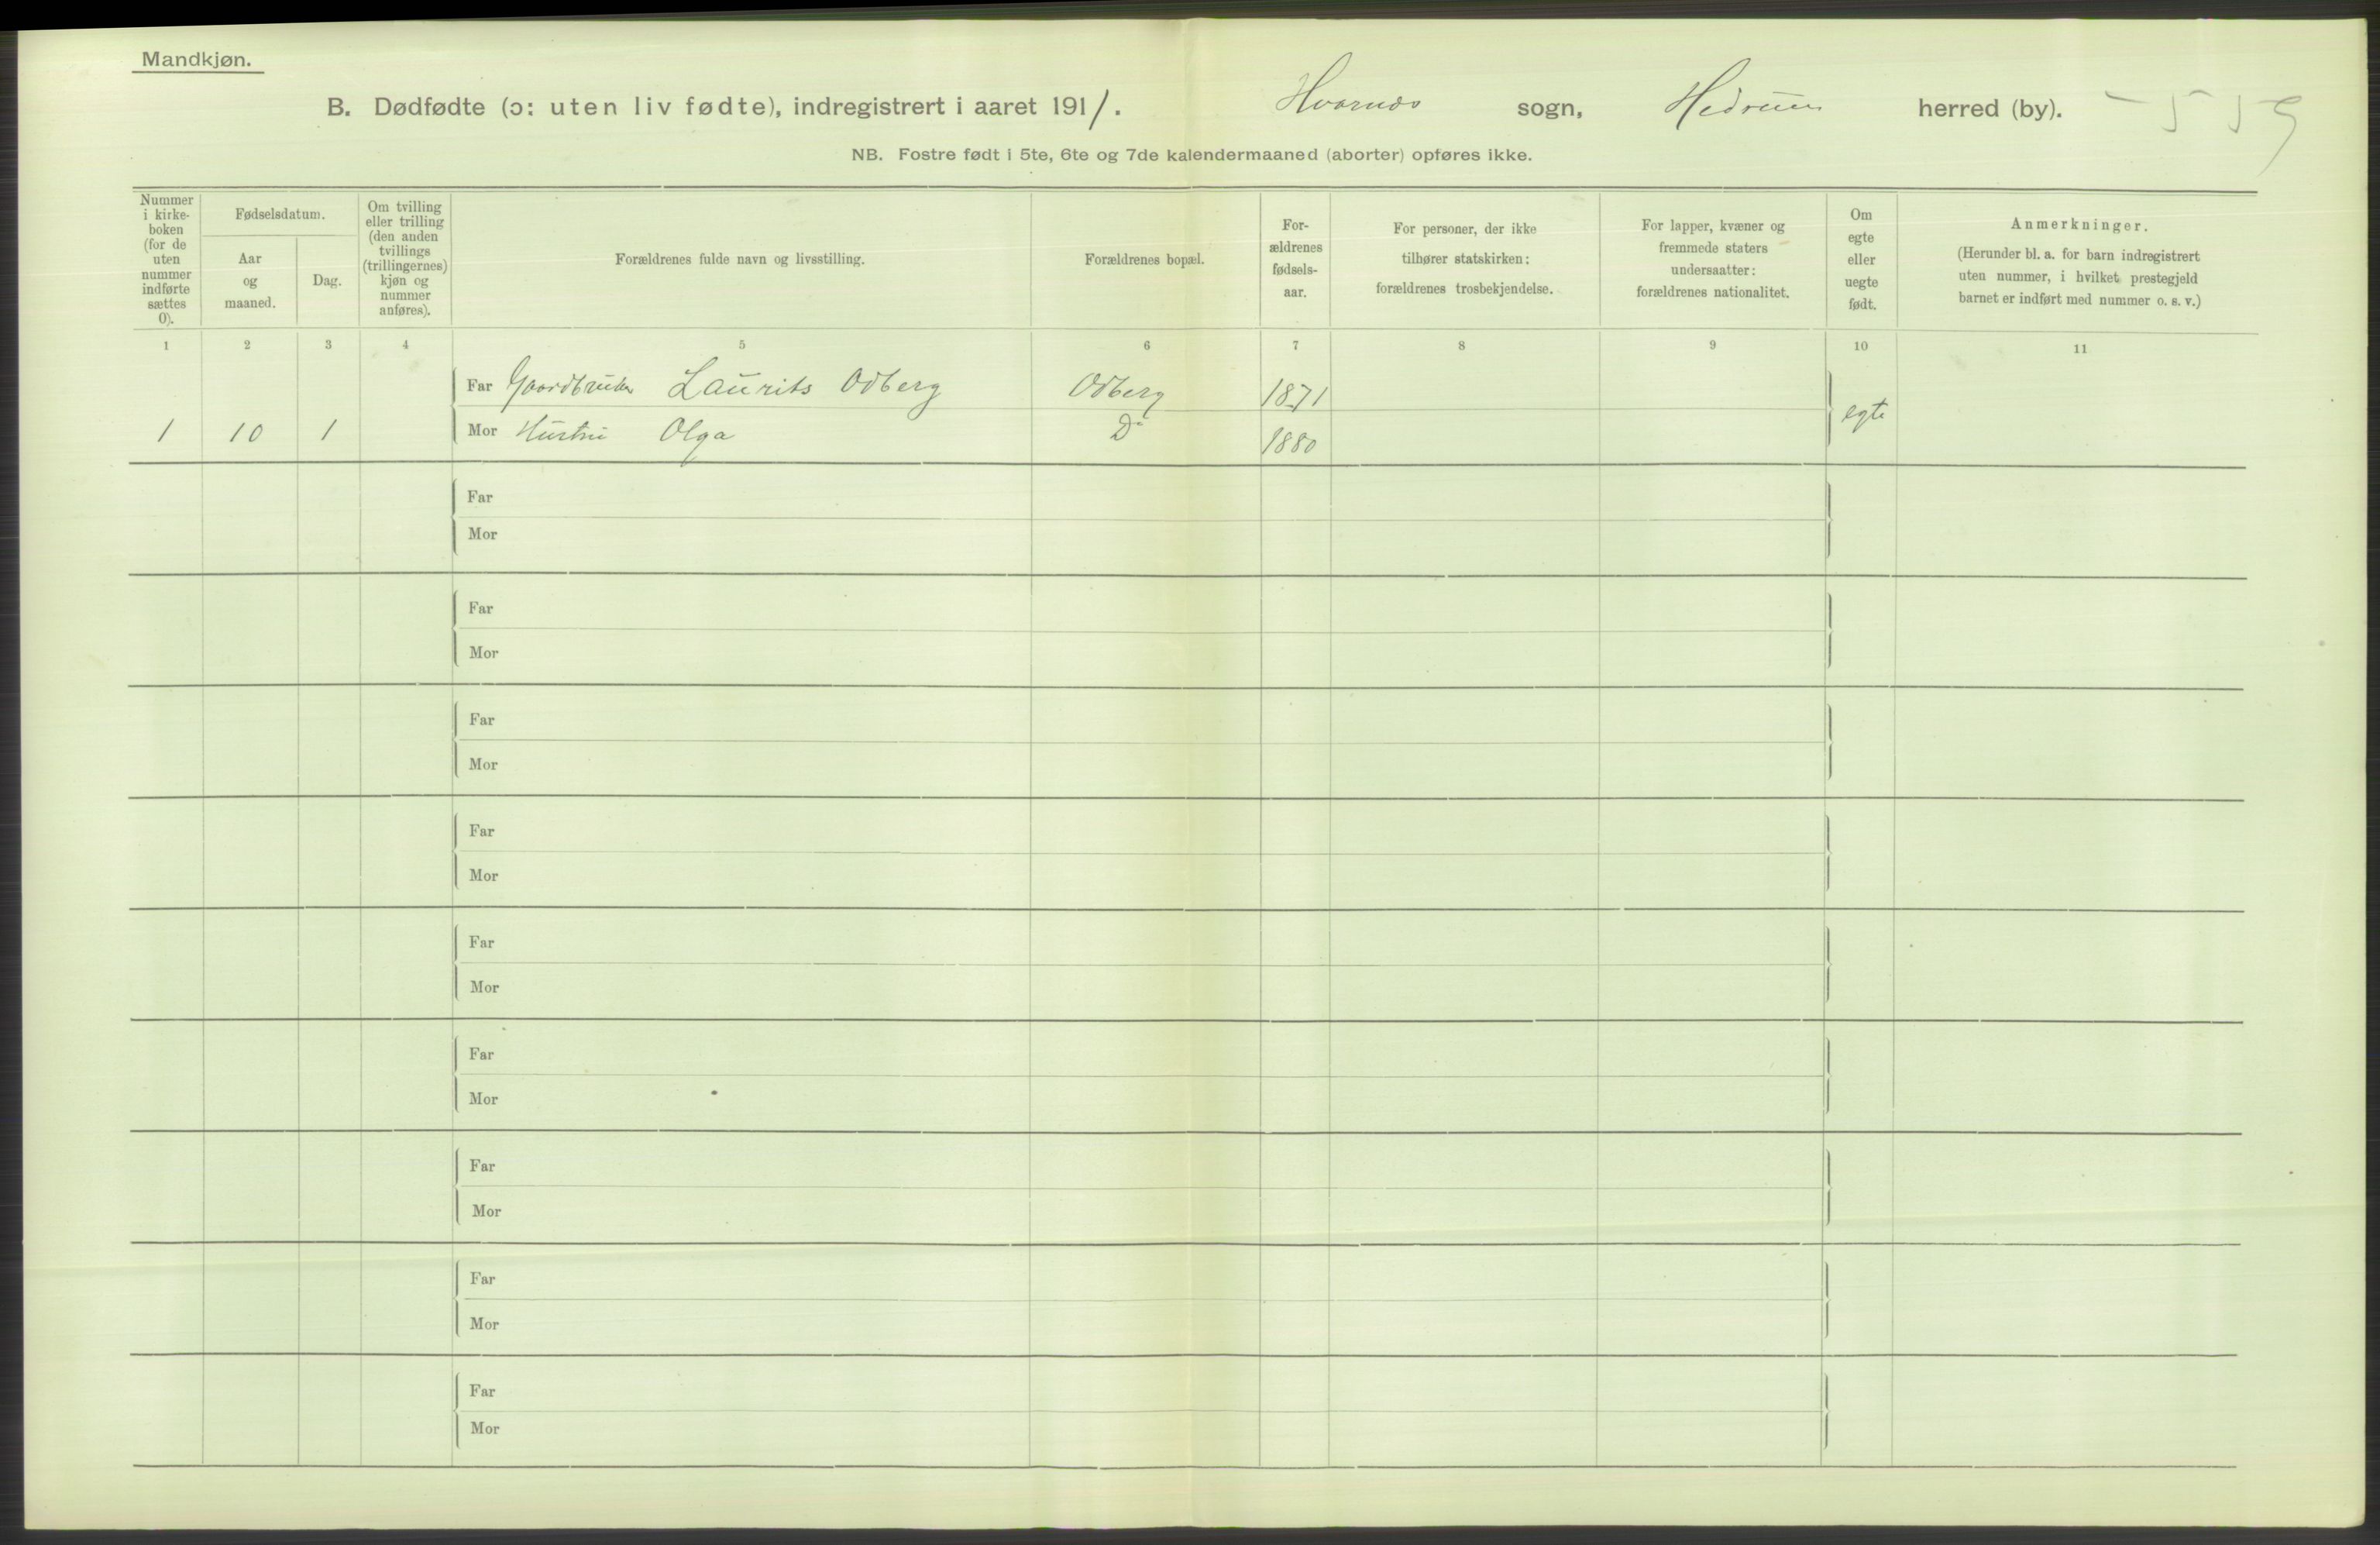 Mandkjøn.
B. Dødfødte (ɔ: uten liv fødte), indregistrert i aaret 1911. Hvarnes sogn, Hedrum herred (by).
NB. Fostre født i 5te, 6te og 7de kalendermaaned (aborter) opføres ikke.
Nummer
i kirke-
boken
(for de
uten
nummer
indførte
sættes
0).
Fødselsdatum.
Aar
og
maaned.
Dag.
Om tvilling
eller trilling
(den anden
tvillings
(trillingernes)
kjøn og
nummer
anføres).
Forældrenes fulde navn og livsstilling.
Forældrenes bopæl.
For-
ældrenes
fødsels-
aar.
For personer, der ikke
tilhører statskirken:
forældrenes trosbekjendelse.
For lapper, kvæner og
fremmede staters
undersaatter:
forældrenes nationalitet.
Om
egte
eller
uegte
født.
Anmerkninger.
(Herunder bl. a. for barn indregistrert
uten nummer, i hvilket prestegjeld
barnet er indført med nummer o. s. v.)
1 2 3 4 5 6 7 8 9 10 11
Far Gaardbruker Laurits Odberg Odberg 1871
1 10 1 Mor Hustru Olga Do 1880 egte
Far
Mor
Far
Mor
Far
Mor
Far
Mor
Far
Mor
Far
Mor
Far
Mor
Far
Mor
Far
Mor